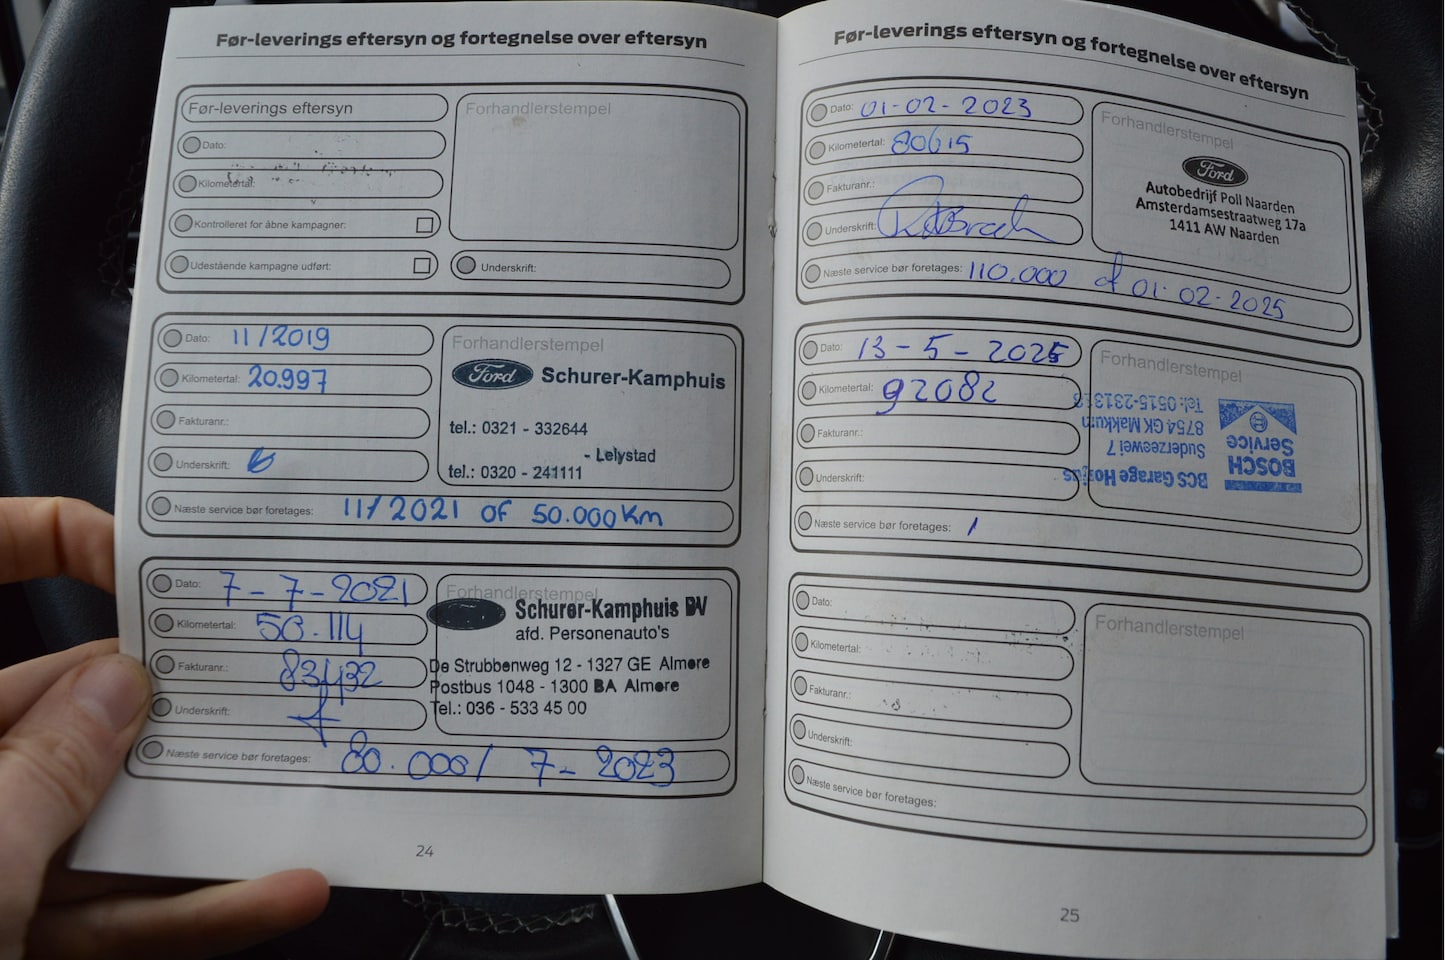 Før-leverings eftersyn og fortegnelse over eftersyn
Før-leverings eftersyn
Forhandlerstempel
Dato:
Kilometertal:
Kontrolleret for åbne kampagner:
Udestående kampagne udført:
Underskrift:
Dato: 11/2019
Kilometertal: 20.997
Fakturanr.:
Underskrift:
Forhandlerstempel
Ford Schurer-Kamphuis
tel.: 0321 - 332644
- Lelystad
tel.: 0320 - 241111
Næste service bør foretages: 11/2021 OF 50.000 Km
Dato: 7-7-2021
Kilometertal: 50.114
Fakturanr.: 83432
Underskrift:
Forhandlerstempel
Schurer-Kamphuis BV
afd. Personenauto's
De Strubbenweg 12 - 1327 GE Almere
Postbus 1048 - 1300 BA Almere
Tel.: 036 - 533 45 00
Næste service bør foretages: 80.000/ 7-2023
24
Før-leverings eftersyn og fortegnelse over eftersyn
Dato: 01-02-2023
Kilometertal: 80615
Fakturanr.:
Underskrift:
Forhandlerstempel
Ford
Autobedrijf Poll Naarden
Amsterdamsestraatweg 17a
1411 AW Naarden
Næste service bør foretages: 110.000 of 01-02-2025
Dato: 13-5-2025
Kilometertal: 92082
Fakturanr.:
Underskrift:
Forhandlerstempel
BOSCH
Service
BCS Garage
Suderzeewei 7
8754 GK Makkum
Tel: 0515-231313
Næste service bør foretages: /
Dato:
Kilometertal:
Fakturanr.:
Underskrift:
Forhandlerstempel
Næste service bør foretages:
25